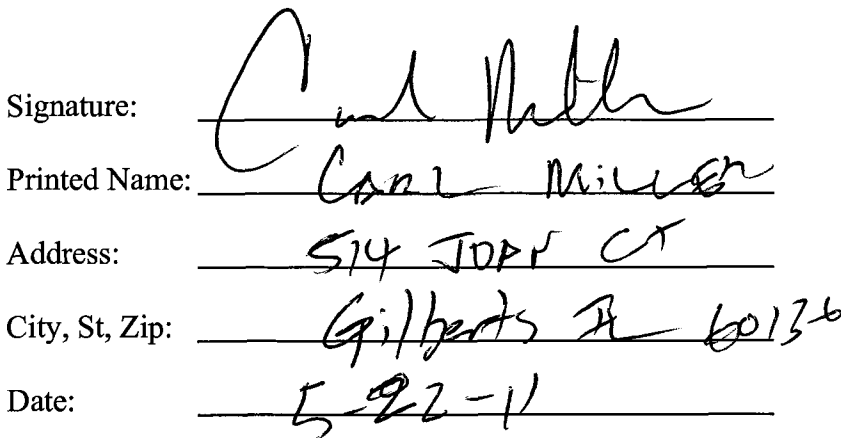 Signature: Carl Miller
Printed Name: CARL MILLER
Address: 514 JOAN CT
City, St, Zip: Gilberts IL 60136
Date: 5-22-11